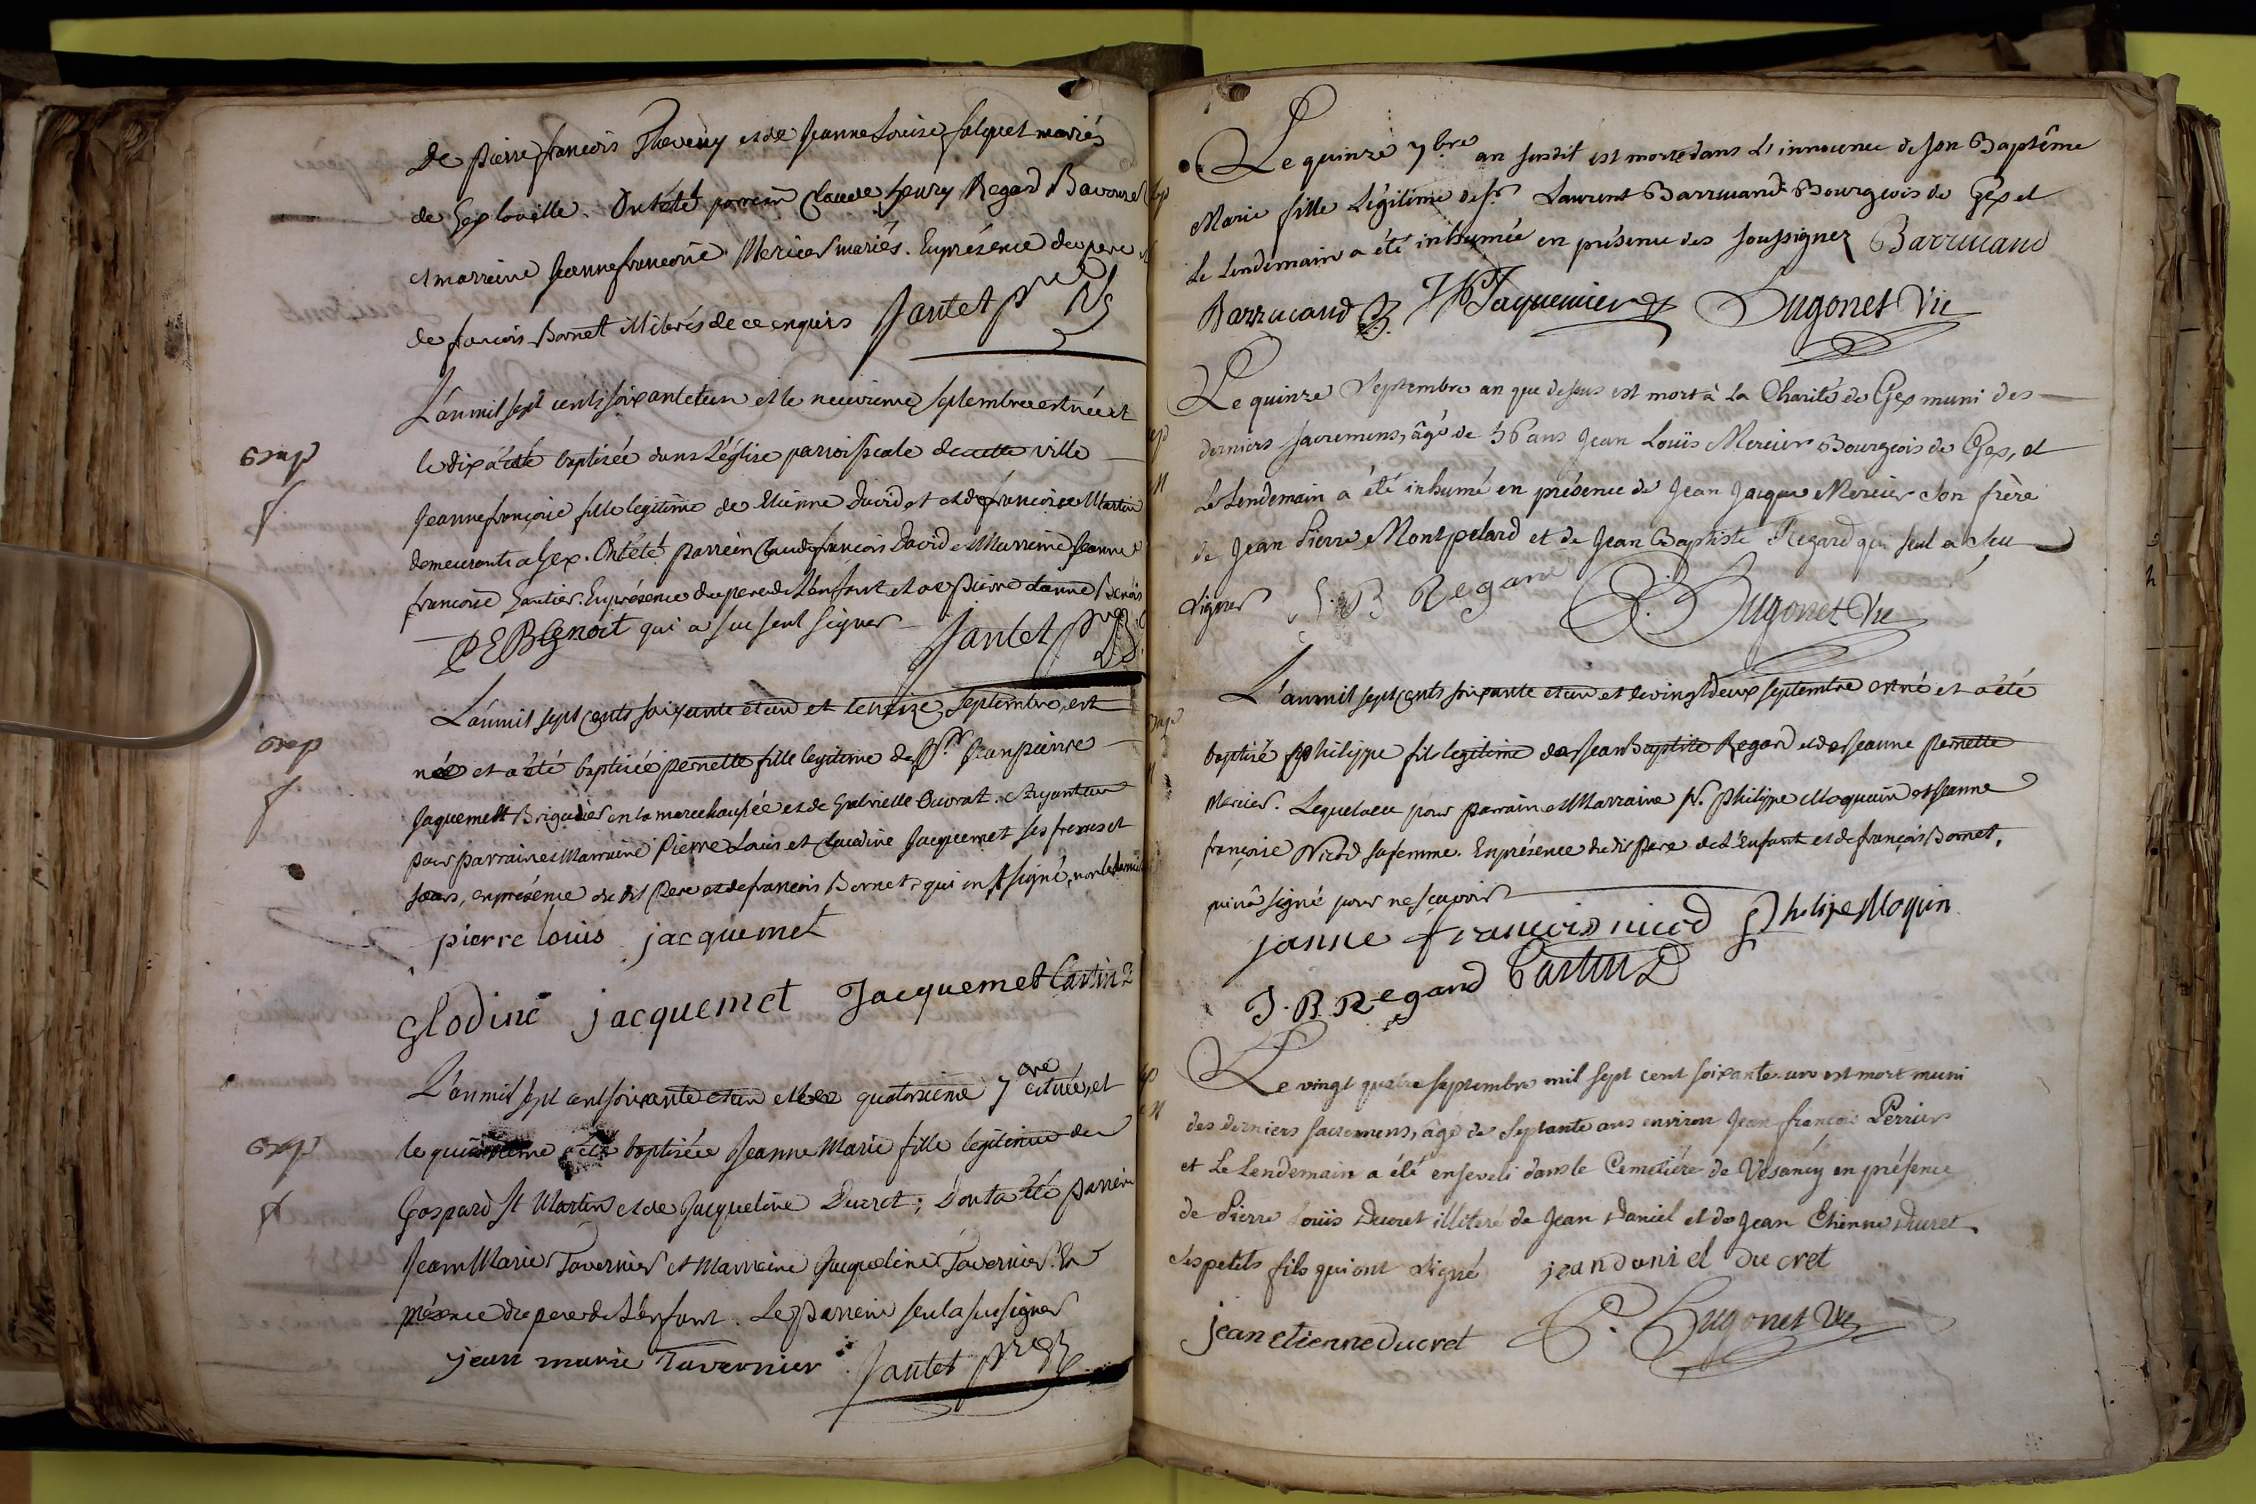 de pierre françois Theveny et de Jeanne Louise falquet mariés
de Gex la ville. Ont été parrein Claude henry Regard Bavouret
et marraine Jeanne françoise Mercier mariés. En présence du pere et
de françois Bornet illiterés de ce enquis Jantet ptre
L'an mil sept cents soixante et un et le neuvieme septembre est née et
Bap
le dix a été baptisée dans l'église parroissiale de cette ville
f
Jeanne françoise fille legitime de Etienne David et de françoise Martin
demeurants a Gex. Ont été parrein Claude françois David et Marreine Jeanne
francoise Gautier. En présence du pere de l'enfant et de pierre Benoit
P E Benoit qui a sçu seul signer Jantet ptre
L'an mil sept cents soixante et un et le treize septembre, est
Bap
née et a été baptisée pernette fille legitime de Sr. Jean pierre
f
Jaquemett Brigadier en la marechaussée et de Gabrielle Duvrat. Ayant eu
pour parrain et Marraine Pierre Louis et Claudine Jacquemet ses freres et
sœurs, en présence du dit Pere et de francois Bornet, qui ont signé, non le dernier
pierre louis jacquemet
Glodine jacquemet Jacquemet Castin
L'an mil sept cent soixante et un et le quatorzieme 7bre est née, et
Bap
le quinzieme a été baptisée Jeanne Marie fille legitime de
f
Gaspard St Martin et de Jacqueline Ducret; Dont a été parrein
Jean Marie Tavernier et Marreine Jacqueline Tavernier. En
présence du pere de l'enfant. Le parrein seul a sçu signer
jean marie Tavernier Jantet ptre
Le quinze 7bre an susdit est morte dans L'innocence de son Baptême
Marie fille Légitime de Sr. Laurent Barrucand Bourgeois de Gex et
Le Lendemain a été inhumée en présence des soussignez Barrucand
Barrucand Jaquemier Hugonet Vic
Le quinze Septembre an que dessus est mort à La Charité de Gex muni des
derniers sacremens, âgé de 56 ans Jean Louïs Mercier Bourgeois de Gex, et
Le Lendemain a été inhumé en présence de Jean Jacque Mercier son frère
de Jean Pierre Montpelard et de Jean Baptiste Regard qui seul a sçu
signer J. B Regard Hugonet Vic
L'an mil sept cents soixante et un et le vingt deux septembre est né et a été
Bap
baptisé philippe fils legitime de Jean Baptiste Regard et de Jeanne pernette
Mercier. Lequel a eu pour parrain et Marraine Sr. Philippe Moquain et Jeanne
françoise Nicod sa femme. En présence du dit Pere de l'Enfant et de françois Bornet,
qui n'a signé pour ne sçavoir
janne francois nicod Philipe Moquin
J. B. Regard Castin
Le vingt quatre septembre mil sept cent soixante-un est mort muni
des derniers sacremens, âgé de septante ans environ Jean-françois Perrier
et Le Lendemain a été enseveli dans le Cemetiére de Vesancy en présence
de Pierre Louïs Ducret illiteré de Jean Daniel et de Jean Etienne Ducret
ses petits fils qui ont signé jean daniel ducret
jean etienne ducret Hugonet Vic